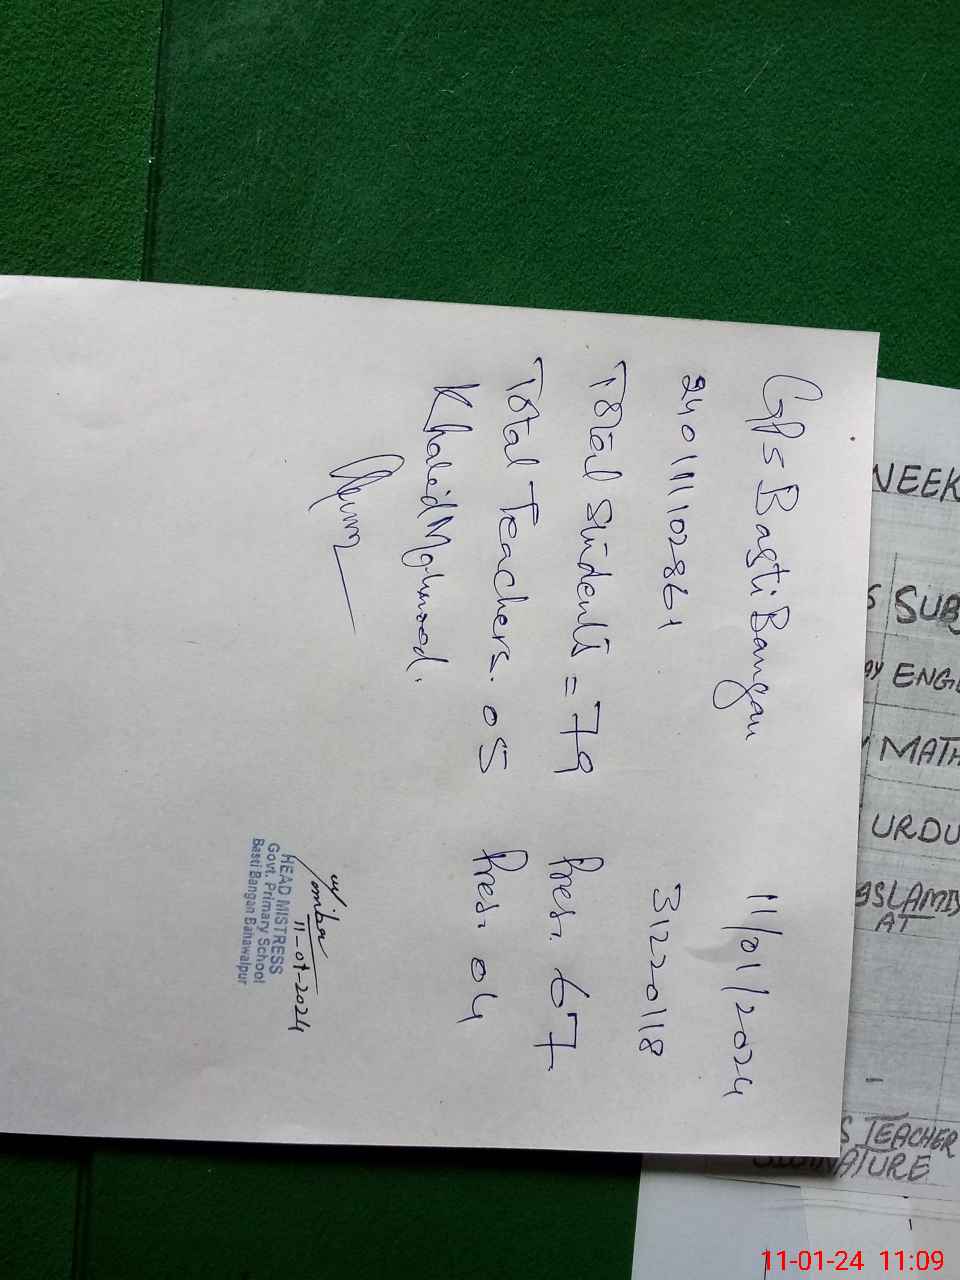 GPS Basti Bangan 11/01/2024
31220118
Total Students = 79 Pres. 67
Total Teachers. 05 Pres. 04
Khalid Mahmood.
11-01-2024
HEAD MISTRESS
Govt. Primary School
Basti Bangan Bahawalpur
WEEK
SUB
ENGL
MATH
URDU
ISLAMIY
AT
TEACHER
11-01-24 11:09